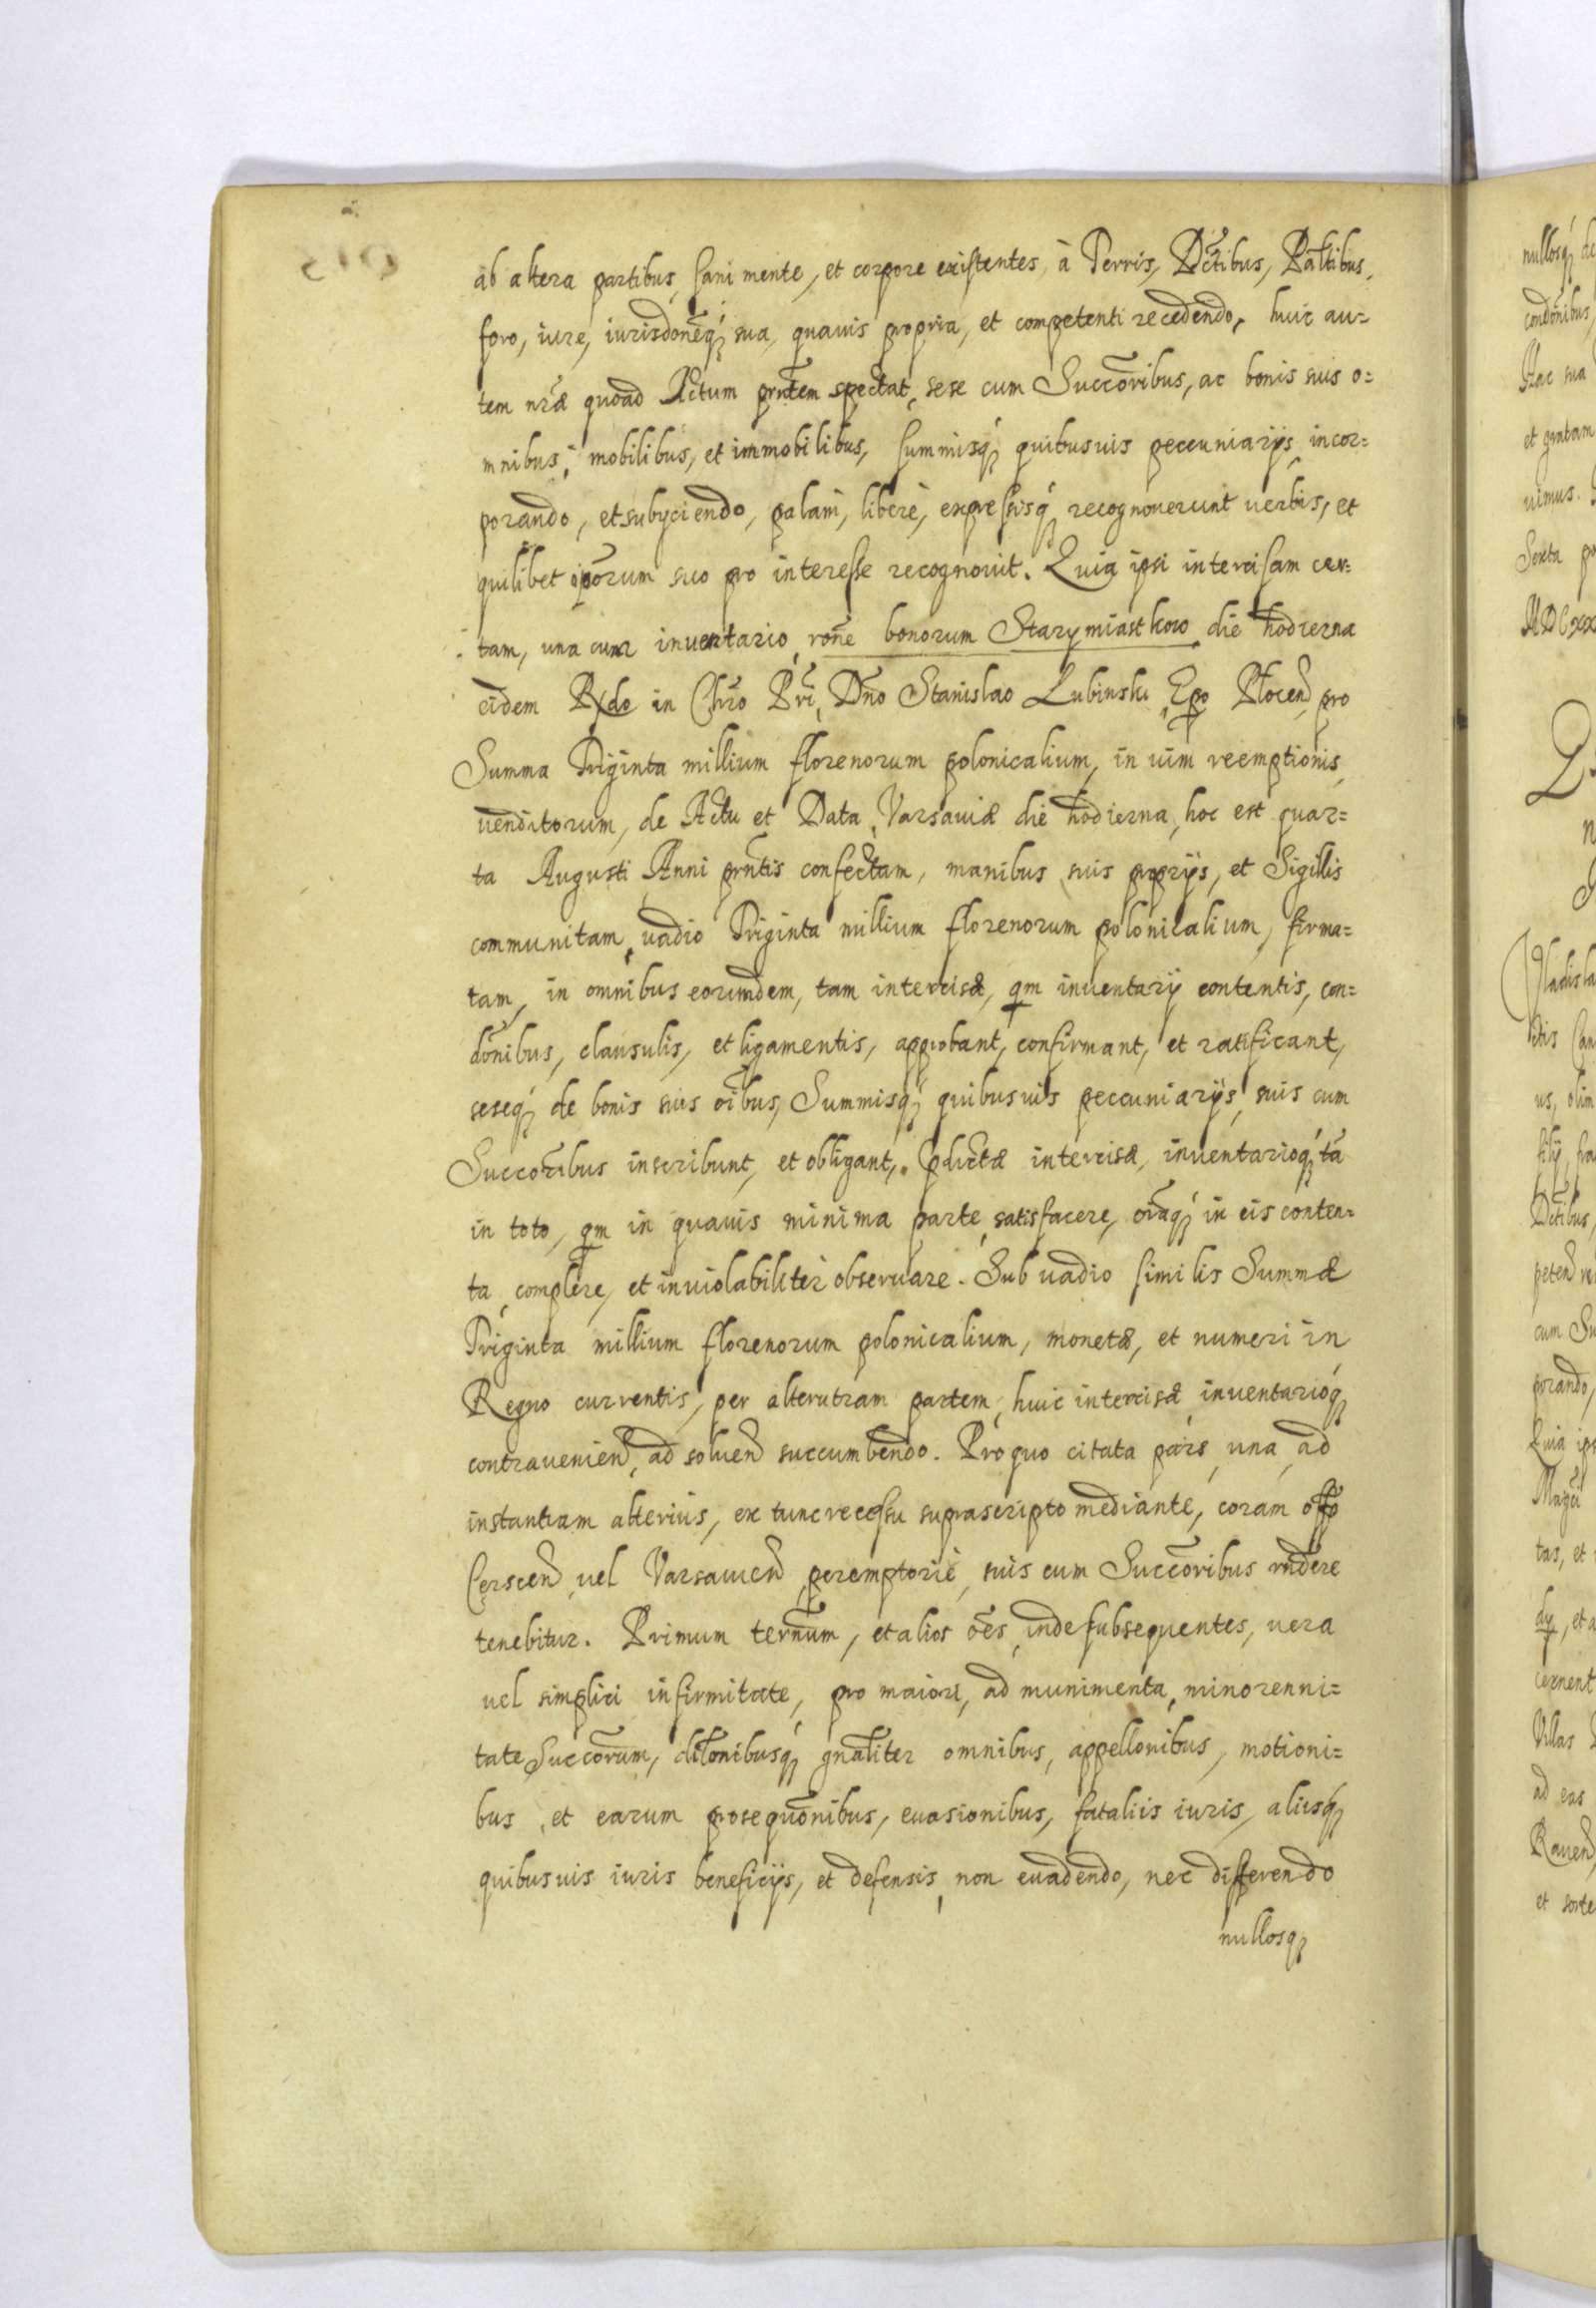 ab altera partibus, sani mente, et corpore existentes, à Terris, Dctibus, Paltibus,
foro, iure, iurisdoneq́ sua, quauis propria, et competenti recedendo, huic au=
tem nrã quoad Actum prntem spectat, sese cum Succoribus, ac bonis suis o=
mnibus, mobilibus, et immobilibus, summisq́ quibusuis peccuniarijs, incor=
porando, et subyciendo, palam, liberè, expressisq́ recognouerunt uerbis, et
quilibet ipõrum suo pro interesse recognouit. Quia ipsi intercisam cer=
tam, una cum inuentario, rõne bonorum Starymiastkow die hodierna
eidem Rxdo in Chro Pri, Dno Stanislao Lubinski, Epo Plocen, pro
Summa Triginta millium florenorum polonicalium, in uim reemptionis,
uenditorum, de Actu et Data, Varsauiæ die hodierna, hoc est quar=
ta Augusti Anni prntis confectam, manibus suis proprijs, et Sigillis
communitam, uadio Triginta millium florenorum polonicalium, firma=
tam, in omnibus eorumdem, tam intercisæ, qm inuentarij contentis, con=
dõnibus, clausulis, et ligamentis, approbant, confirmant, et ratificant,
seseq́ de bonis suis oibus, Summisq́ quibusuis peccuniarijs, suis cum
Succoribus inscribunt, et obligant, pdictæ intercisæ, inuentarioq́ tã
in toto, qm in quauis minima parte, satisfacere, oiaq́ in eis conten=
ta, complere, et inuiolabiliter obseruare. Sub uadio similis Summæ
Triginta millium florenorum polonicalium, monetæ, et numeri in
Regno currentis, per alterutram partem, huic intercisæ inuentarioq́
contrauenien, ad soluen succumbendo. Pro quo citata pars, una, ad
instantiam alterius, ex tunc recessu suprascripto mediante, coram offo
Cerscen, uel Varsauien, peremptoriè, suis cum Succoribus rndere
tenebitur. Primum ternum, et alios oes, inde subsequentes, uera
uel simplici infirmitate, pro maiori, ad munimenta, minorenni=
tate Succorum, dilonibusq́ gnaliter omnibus, appellonibus, motioni=
bus, et earum prosequonibus, euasionibus, fataliis iuris, aliisq́
quibusuis iuris beneficijs, et defensis, non euadendo, nec differendo
nullosq́